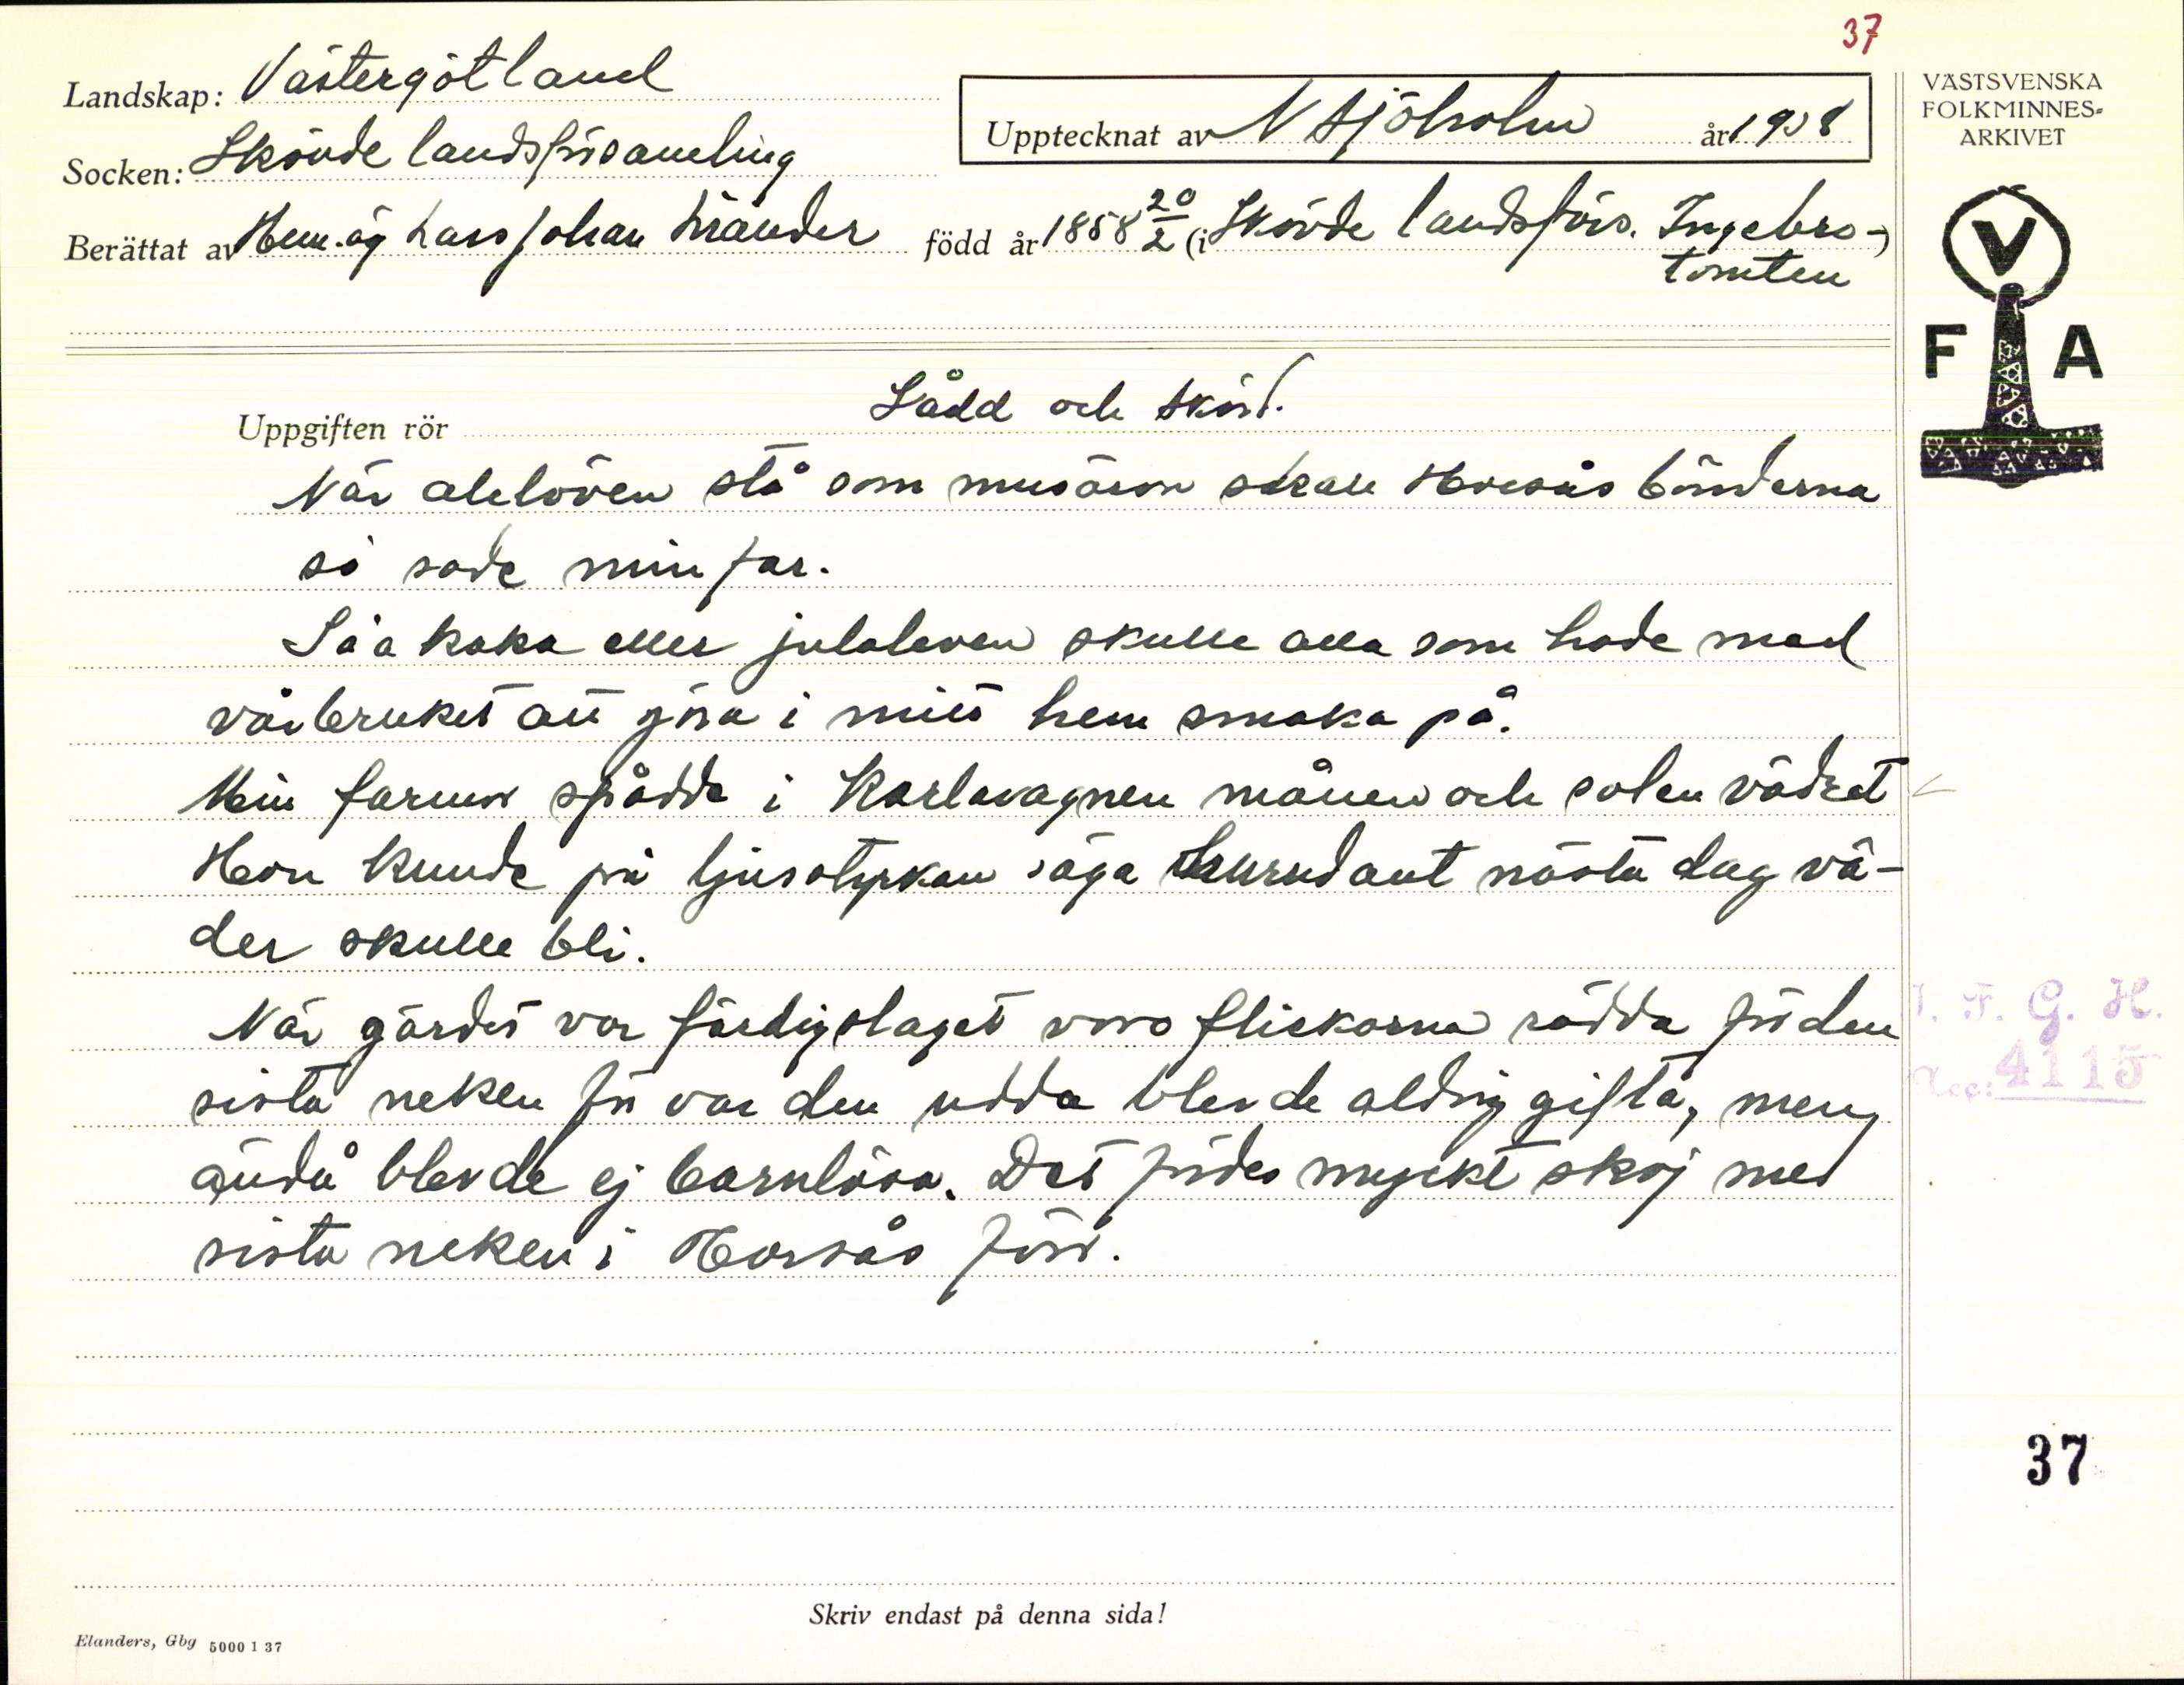 37
Landskap: Västergötland
Socken: Skövde landsförsamling
Upptecknat av N Sjöholm år 1938
Berättat av Hem.äg Lars Johan Linander född år 1858 20/2 (i Skövde landsförs. Ingebro-)
tomten
VÄSTSVENSKA
FOLKMINNES-
ARKIVET
V
F A
Uppgiften rör Sådd och skörd.
När allöven stå som musöron skall Horsås bönderna
så sade min far.
Såa kaka eller julaleven skulle alla som hade med
vårbruket att göra i mitt hem smaka på.
Min farmor spådde i Karlavagnen månen och solen vädret
Hon kunde på ljusstyrkan säga hurudant nästa dag vä-
der skulle bli.
När gärdet var färdigslaget voro flickorna rädda för den
sista neken för var den udda blev de aldrig gifta, men
ändå blev de ej barnlösa. Det fördes mycket skoj med
sista neken i Horsås förr.
I. F. G. H.
Acc: 4115
37
Skriv endast på denna sida!
Elanders, Gbg 5000 1 37